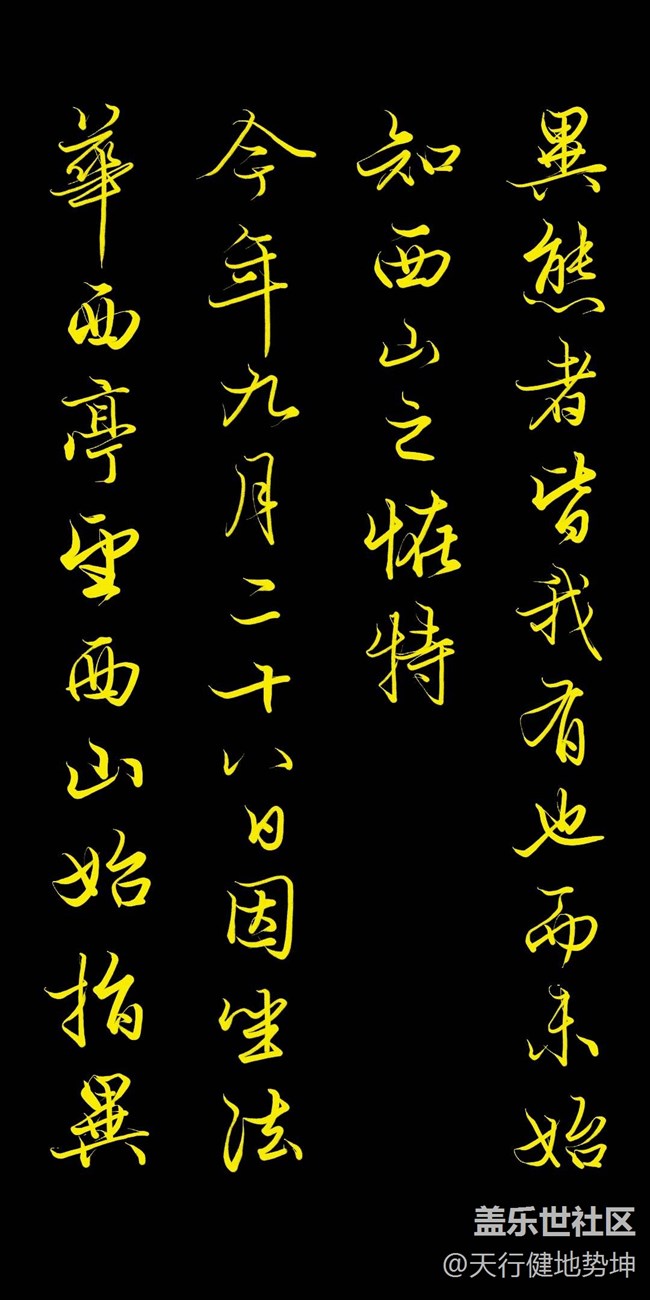 異態者皆我有也而未始
知西山之恠特
今年九月二十八日因坐法
華西亭望西山始指異
盖乐世社区
@天行健地势坤